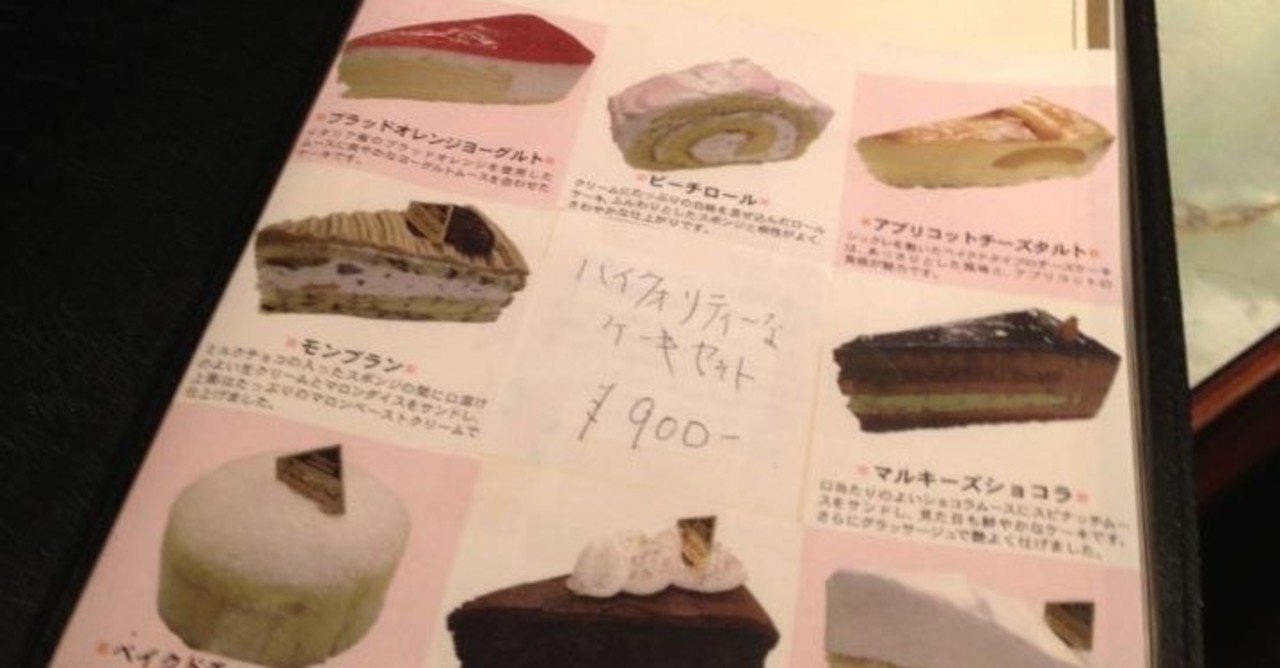 ブラッドオレンジヨーグルト
イタリア産のブラッドオレンジを使用した
ムースに爽やかなヨーグルトムースを合わせた
ケーキです。
ピーチロール
クリームにたっぷりの白桃を混ぜ込んだロール
ケーキ。ふんわりとしたスポンジと相性がよく
さわやかな仕上がりです。
アプリコットチーズタルト
は、あっさりとした風味と、アプリコットの
酸味が魅力です。
モンブラン
ミルクチョコの入ったスポンジの間に口溶け
のよい生クリームとマロンダイスをサンドし、
上面はたっぷりのマロンペーストクリームで
仕上げました。
ハイクォリティーな
ケーキセット
¥900-
マルキーズショコラ
口当たりのよいショコラムースにスピナッチムー
スをサンドし、見た目も鮮やかなケーキです。
さらにグラッサージュで艶よく仕げました。
ベイクドチ